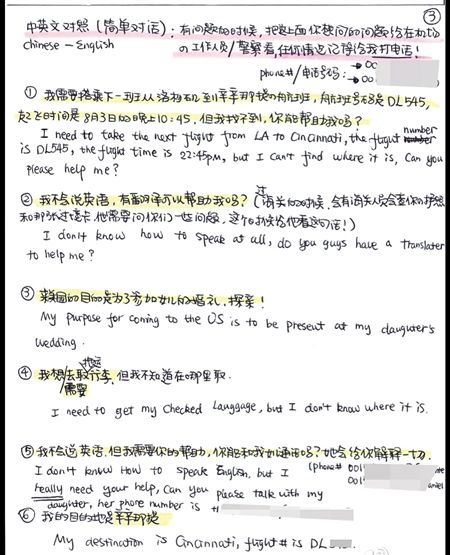 ③
中英文对照(简单对话):有问题的时候,把上面你想问的问题给在机场
Chinese - English 的工作人员/警察看,任何情况记得给我打电话!
phone#/电话号码: → 00
→ 00
① 我需要搭乘下一班从洛杉矶到辛辛那提的航班,航班号码是DL545,
起飞时间是8月3日的晚上10:45,但我找不到,你能帮助我吗?
I need to take the next flight from LA to Cincinnati, the flight number
is DL545, the flight time is 22:45pm, but I can't find where it is, Can you
please help me?
② 我不会说英语,有翻译可以帮助我吗?(过海关的时候,会有海关人员会查你的护照
和那张过境卡,他需要问你们一些问题,这个时候给他看这句话!)
I don't know how to speak at all, do you guys have a translater
to help me?
③ 来美国的目的是为了参加女儿的婚礼,探亲!
My purpose for coming to the US is to be present at my daughter's
wedding.
④ 我想/需要去取行李,但我不知道在哪里取.
I need to get my checked Languagge, but I don't know where it is.
⑤ 我不会说英语,但我需要你的帮助,你能和我女儿通话吗?她会给你解释一切.
I don't know How to speak English, but I (phone# 001
really need your help, Can you please talk with my 001
daughter, her phone number is
⑥ 我的目的地是辛辛那提
My destination is Cincinnati, flight# is DL